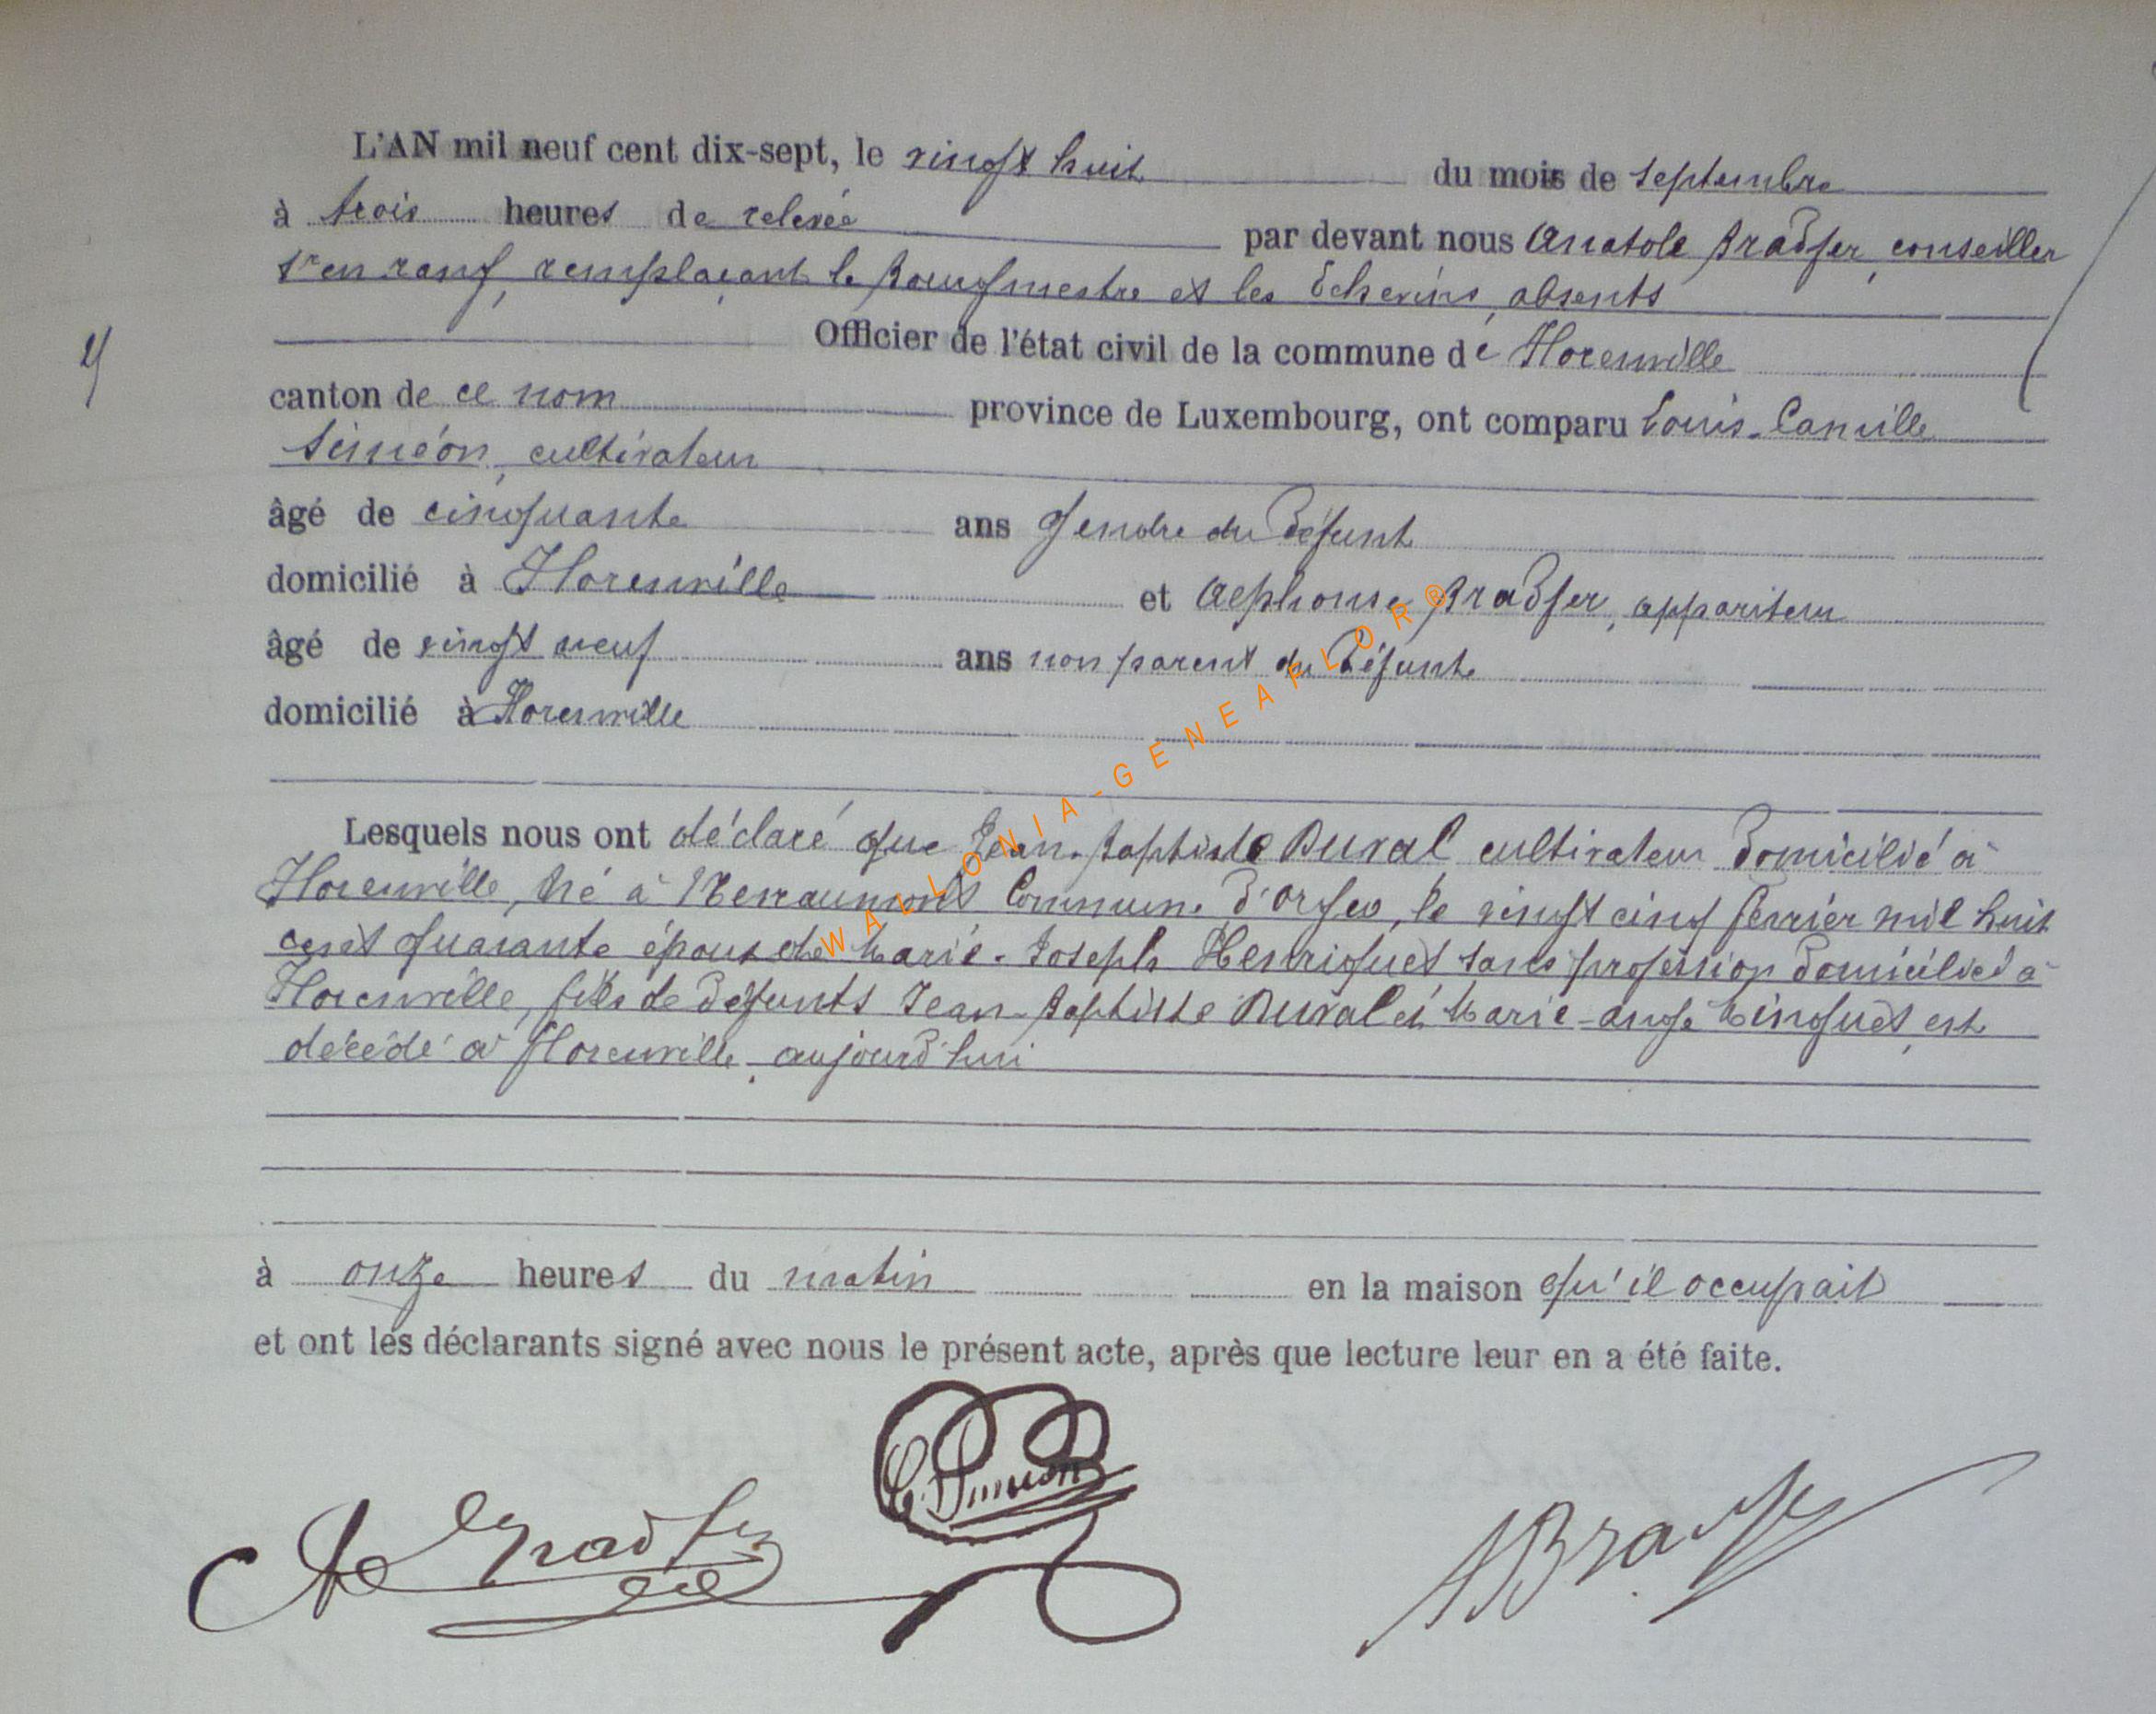 L'AN mil neuf cent dix-sept, le vingt huit du mois de septembre
à trois heures de relevée par devant nous Anatole Bradfer, conseiller
1er en rang, remplaçant le Bourgmestre et les Echevins, absents
Officier de l'état civil de la commune de Florenville
canton de ce nom province de Luxembourg, ont comparu Louis-Camille
Siméon, cultivateur
âgé de cinquante ans gendre du défunt
domicilié à Florenville et Alphonse Bradfer, appariteur
âgé de vingt neuf ans non parent du défunt
domicilié à Florenville
Lesquels nous ont déclaré que Jean-Baptiste Duval, cultivateur domicilié à
Florenville, né à Commune d'Orgeo, le vingt cinq février mil huit
cent quarante époux de Marie-Joseph Henriquet sans profession domiciliée à
Florenville, fils de défunts Jean-Baptiste Duval et Marie-Ange est
décédé à Florenville, aujourd'hui
à onze heures du matin en la maison qu'il occupait
et ont les déclarants signé avec nous le présent acte, après que lecture leur en a été faite.
Al Bradfer
C. Siméon
A Bradfer
WALLONIA-GENEAFLOR®